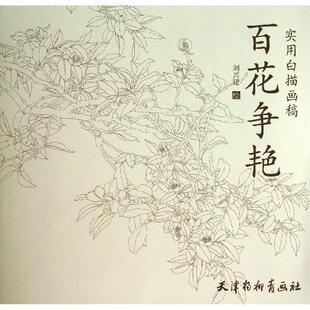 实用白描画稿
百花争艳
刘兴建 绘
天津杨柳青画社